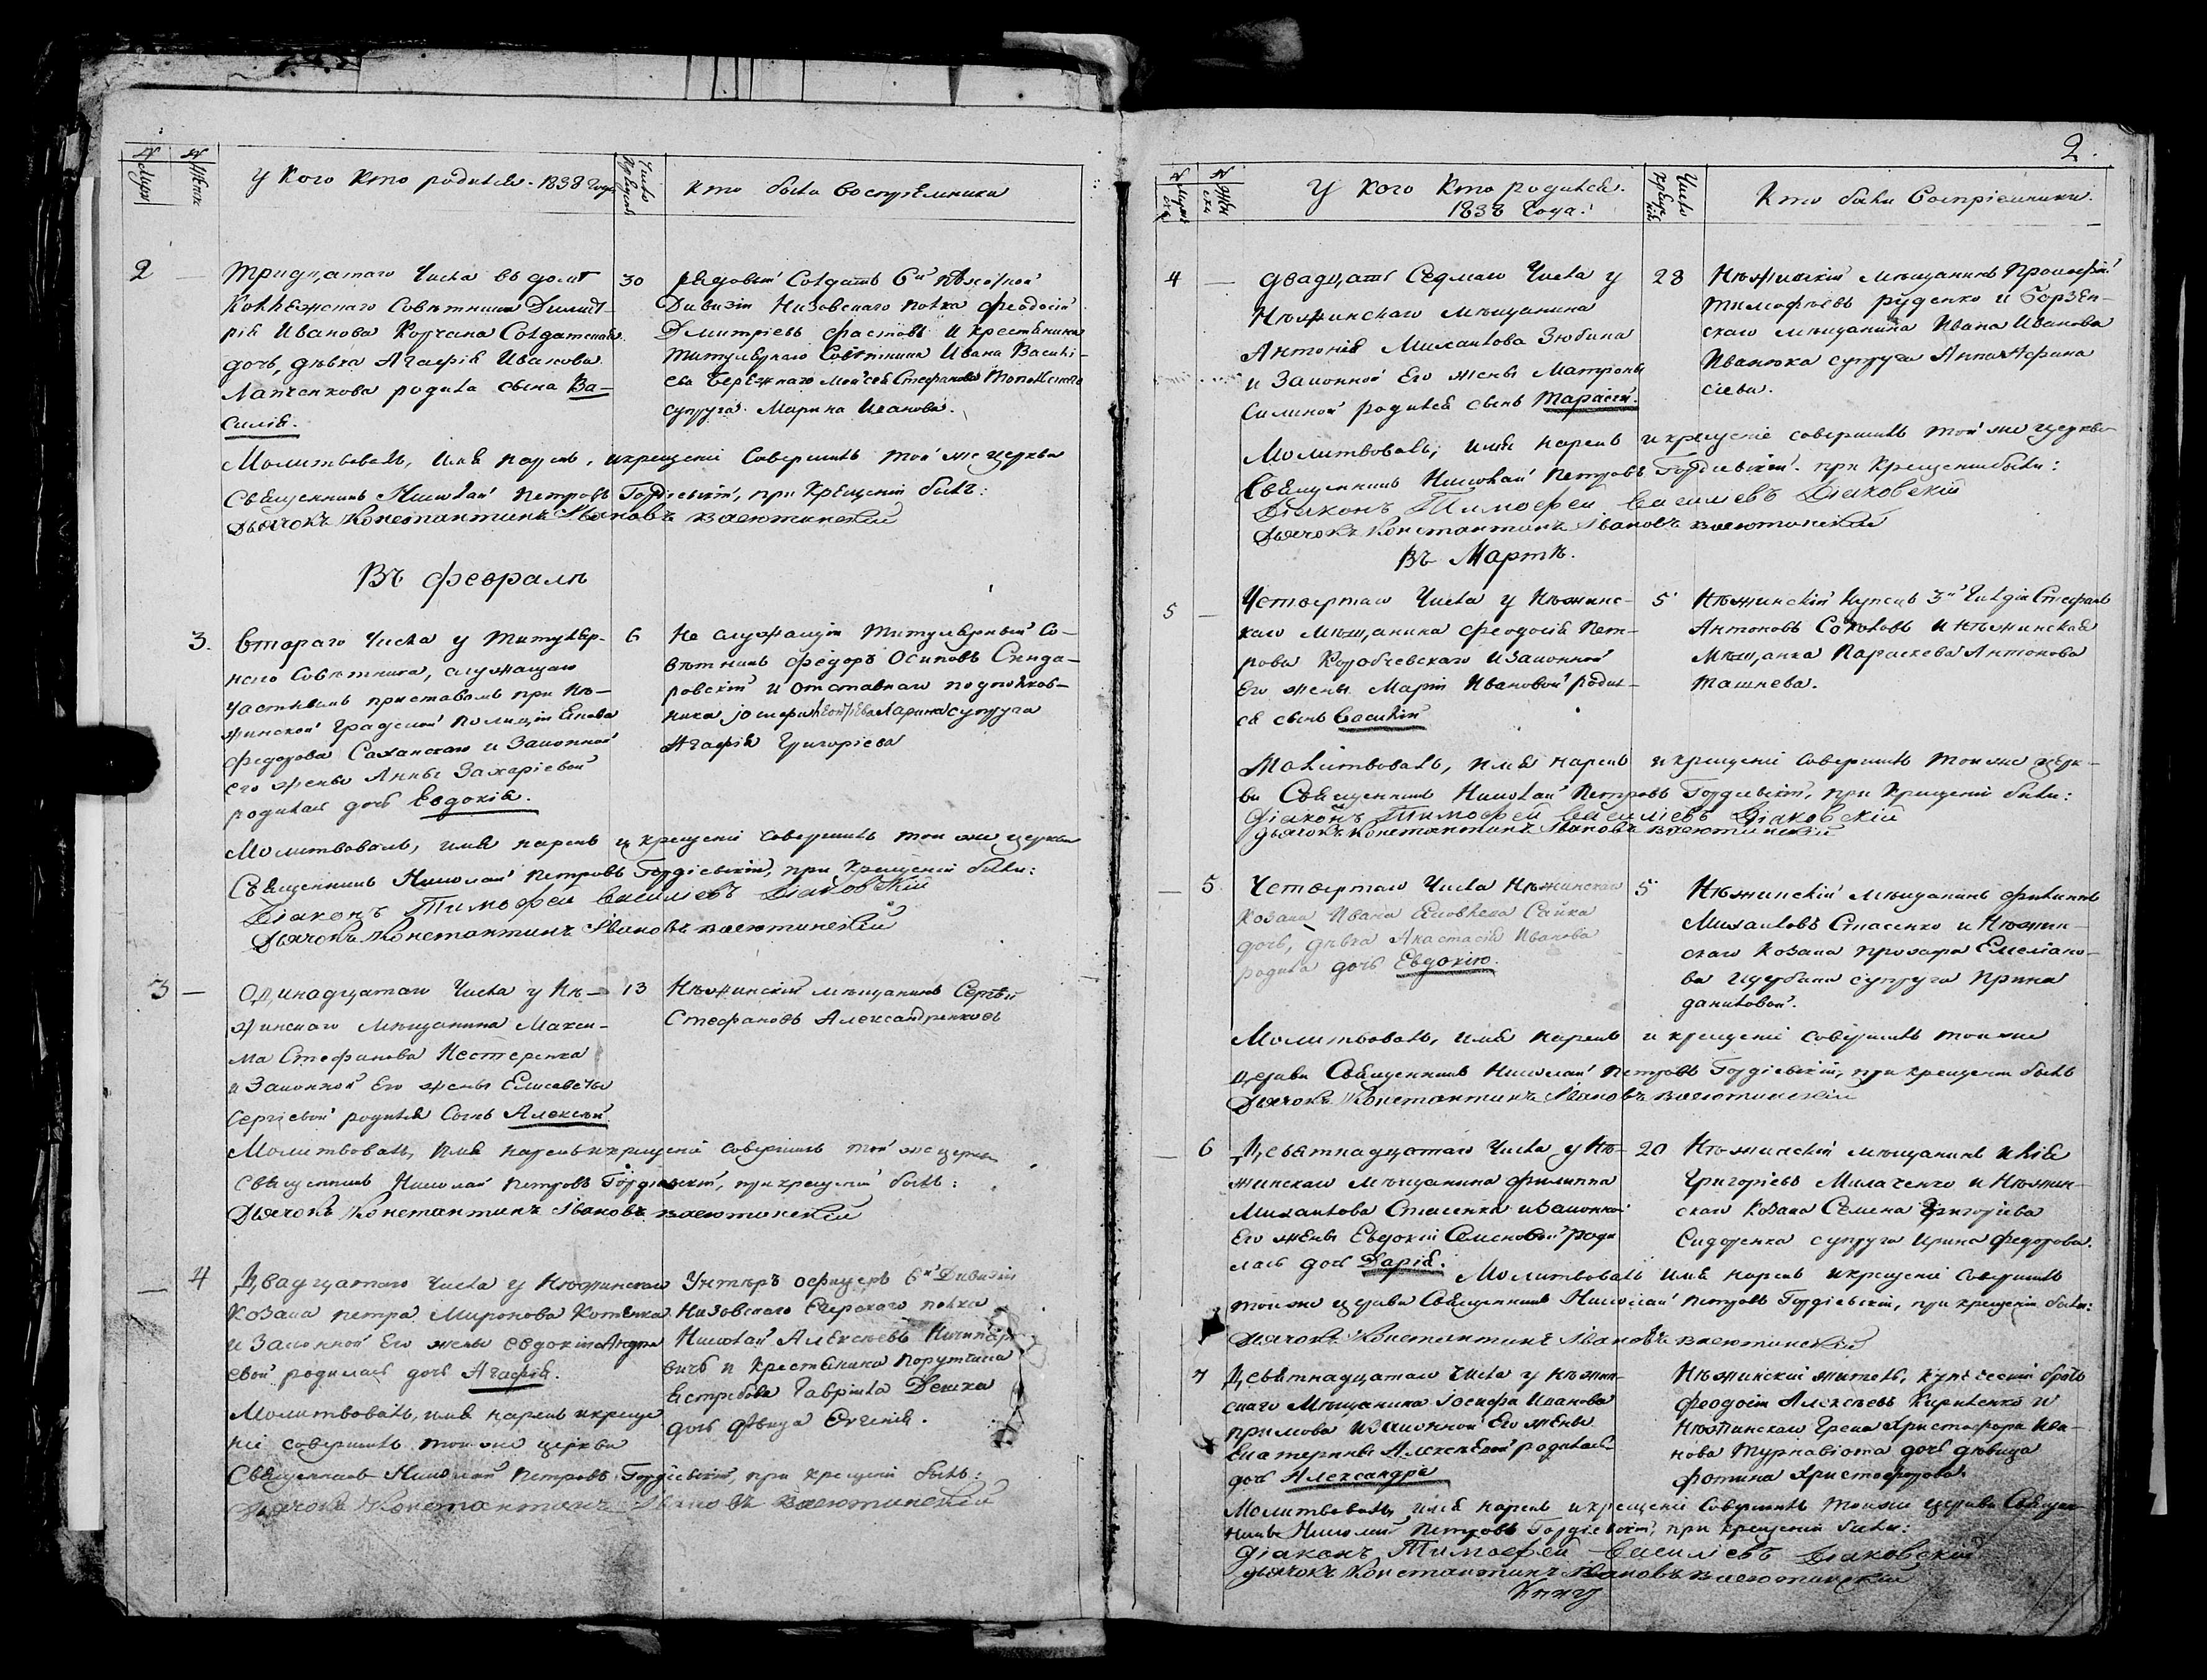 № Мужск
№ Женск
У кого кто родился. 1838 года
Число крещенія
кто были Воспріемники
2 — Тридцатаго Числа въ домѣ
Коллежскаго Совѣтника Димит-
рія Иванова Корчака Солдатская
дочь, дѣвка Агафія Иванова
Лапченкова родила сына Ва-
силія.
30 Рядовый Солдатъ 6й Пѣхотной
Дивизіи Низовскаго полка Феодосій
Дмитріевъ и Крестьянина
Титулярнаго Совѣтника Ивана Васи-
ева Бережнаго Моисея Стефанова
супруга Марина Иванова.
Молитвовалъ, имя нарекъ, и крещеніе совершилъ той же церкви
Священникъ Николай Петровъ Гордіевскій, при Крещеніи былъ:
Дьячокъ Константинъ Ивановъ
Въ Февралѣ
3. Втораго Числа у Титуляр-
наго Совѣтника, служащаго
частнымъ приставомъ при Нѣ-
жинской Градской Полиціи Якова
Федорова Саханскаго и Законной
его жены Анны Захаріевой
родилась дочь Евдокія.
6 Не служащій Титулярный Со-
вѣтникъ Федоръ Осиповъ Скида-
ровскій и отставнаго подполков-
ника Іосифа Ларина супруга
Агафія Григоріева
Молитвовалъ, имя нарекъ и крещеніе совершилъ той же церкви
Священникъ Николай Петровъ Гордіевскій, при крещеніи были:
Діаконъ Тимофей Васильевъ Діаковскій
Дьячокъ Константинъ Ивановъ
3 — Одинадцатаго Числа у Нѣ-
жинскаго Мѣщанина Макси-
ма Стефанова Нестеренка
и Законной Его жены Елисаветы
Сергіевой родился Сынъ Алексѣй.
13 Нѣжинскій мѣщанинъ Сергѣй
Стефановъ Александренковъ
Молитвовалъ, имя нарекъ и крещеніе совершилъ той же церкви
Священникъ Николай Петровъ Гордіевскій, при крещеніи былъ:
Дьячокъ Константинъ Ивановъ
— 4 Двадцатаго Числа у Нѣжинскаго
Козака Петра Миронова Котенка
и Законной Его жены Евдокіи Андре
евой родилась дочь Агафія.
Унтеръ офицеръ 6й Дивизіи
Низовскаго Егерскаго полка
Николай Алексѣевъ
вичъ и Крестьянина Порутчика
Ястребова Гавріила Демка
дочь дѣвица Евгенія.
Молитвовалъ, имя нарекъ и креще
ніе совершилъ той же церкви
Священникъ Николай Петровъ Гордіевскій, при крещеніи былъ:
Дьячокъ Константинъ Ивановъ
2.
№ Мужеска
№ Женска
У кого Кто родился.
1838 Года.
Число крещенія
Кто были Воспріемники.
4 — двадцать Седмаго Числа у
Нѣжинскаго мѣщанина
Антонія Михаилова Зюбина
и Законной Его жены Матроны
родился сынъ Тарасій.
28 Нѣжинскій мѣщанинъ Прокофій
Тимофѣевъ Руденко и Борзен-
скаго мѣщанина Ивана Иванова
Иванюка супруга Анна Афана
сіева.
Молитвовалъ, имя нарекъ и крещеніе совершилъ той же церкви
Священникъ Николай Петровъ Гордіевскій. при Крещеніи были:
Діаконъ Тимофей Васильевъ Діаковскій
Дьячокъ Константинъ Ивановъ
Въ Мартѣ.
5 — Четвертаго Числа у Нѣжинс-
каго мѣщанина Феодосія Пет-
рова Коробчевскаго и законной
Его жены Маріи Ивановой родил-
ся сынъ Василій
5 Нѣжинскій Купецъ 3й Гильдіи Стефанъ
Антоновъ Соколовъ и Нѣжинская
Мѣщанка Параскева Антонова
Ташнева.
Молитвовалъ, имя нарекъ и крещеніе совершилъ той же церк-
ви Священникъ Николай Петровъ Гордіевскій, при Крещеніи были:
Діаконъ Тимофей Васильевъ Діаковскій
дьячокъ Константинъ Ивановъ
— 5 Четвертаго Числа Нѣжинскаго
Козака Ивана Яковлева Сайка
дочь, дѣвка Анастасія Иванова
родила дочь Евдокію.
5 Нѣжинскій мѣщанинъ Филиппъ
Михаиловъ Стасенко и Нѣжин-
скаго Козака Прохора Емеліано-
ва Щербака супруга Ирина
Даниловой.
Молитвовалъ, имя нарекъ и крещеніе совершилъ той же
церкви Священникъ Николай Петровъ Гордіевскій, при крещеніи былъ
Дьячокъ Константинъ Ивановъ
— 6 Девятнадцатаго Числа у Нѣ-
жинскаго мѣщанина Филиппа
Михаилова Стасенка и Законной
Его жены Евдокіи Семеновой роди
лась дочь Дарія.
20 Нѣжинскій мѣщанинъ Илія
Григорьевъ Милаченко и Нѣжин-
скаго Козака Семена Григорьева
Сидоренка супруга Ирина Федорова.
Молитвовалъ имя нарекъ и крещеніе совершилъ
той же церкви Священникъ Николай Петровъ Гордіевскій, при крещеніи были:
Дьячокъ Константинъ Ивановъ
7 Девятнадцатаго Числа у Нѣжин-
скаго Мѣщанина Іосифа Иванова
и Законной Его жены
Екатерины Алексѣевой родилась
дочь Александра
Нѣжинскій житель, купеческій братъ
Феодосій Алексѣевъ Кириленко и
Нѣжинскаго Грека Христофора Ива-
нова дочь дѣвица
Фотина Христофорова.
Молитвовалъ, имя нарекъ и крещеніе совершилъ той же церкви Священ-
никъ Николай Петровъ Гордіевскій, при крещеніи были:
Діаконъ Тимофей Васильевъ Діаковскій
Дьячокъ Константинъ Ивановъ